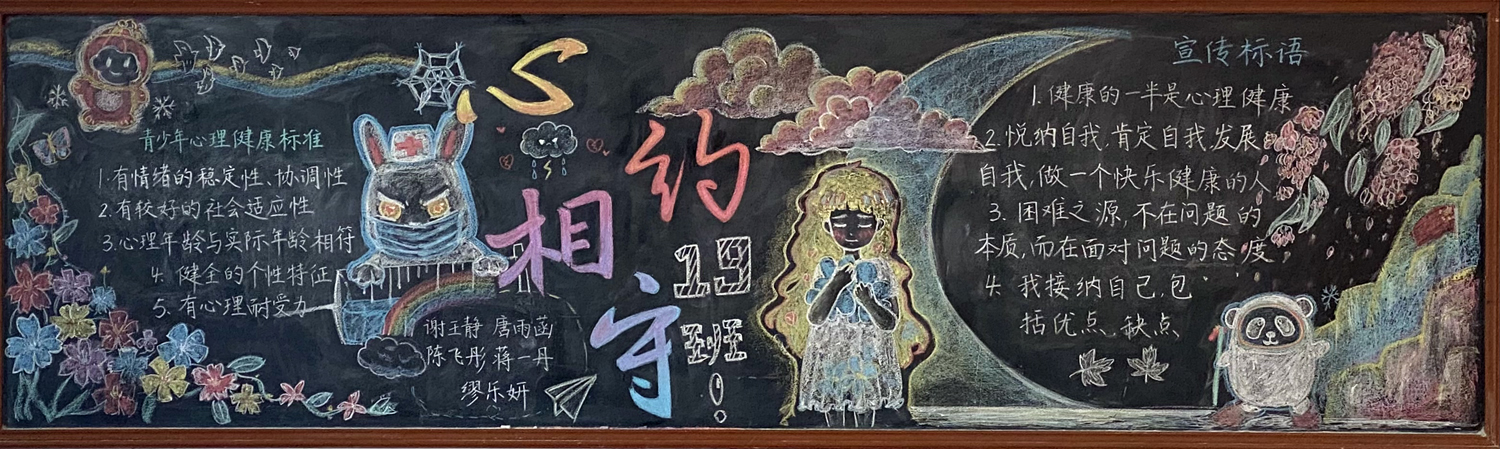 青少年心理健康标准
1.有情绪的稳定性、协调性
2.有较好的社会适应性
3.心理年龄与实际年龄相符
4.健全的个性特征
5.有心理耐受力
心
约
相
守
19
班
!
谢王静 唐雨菡
陈飞彤 蒋一丹
缪乐妍
宣传标语
1.健康的一半是心理健康
2.悦纳自我,肯定自我,发展
自我,做一个快乐健康的人
3.困难之源,不在问题的
本质,而在面对问题的态度
4.我接纳自己,包
括优点、缺点、